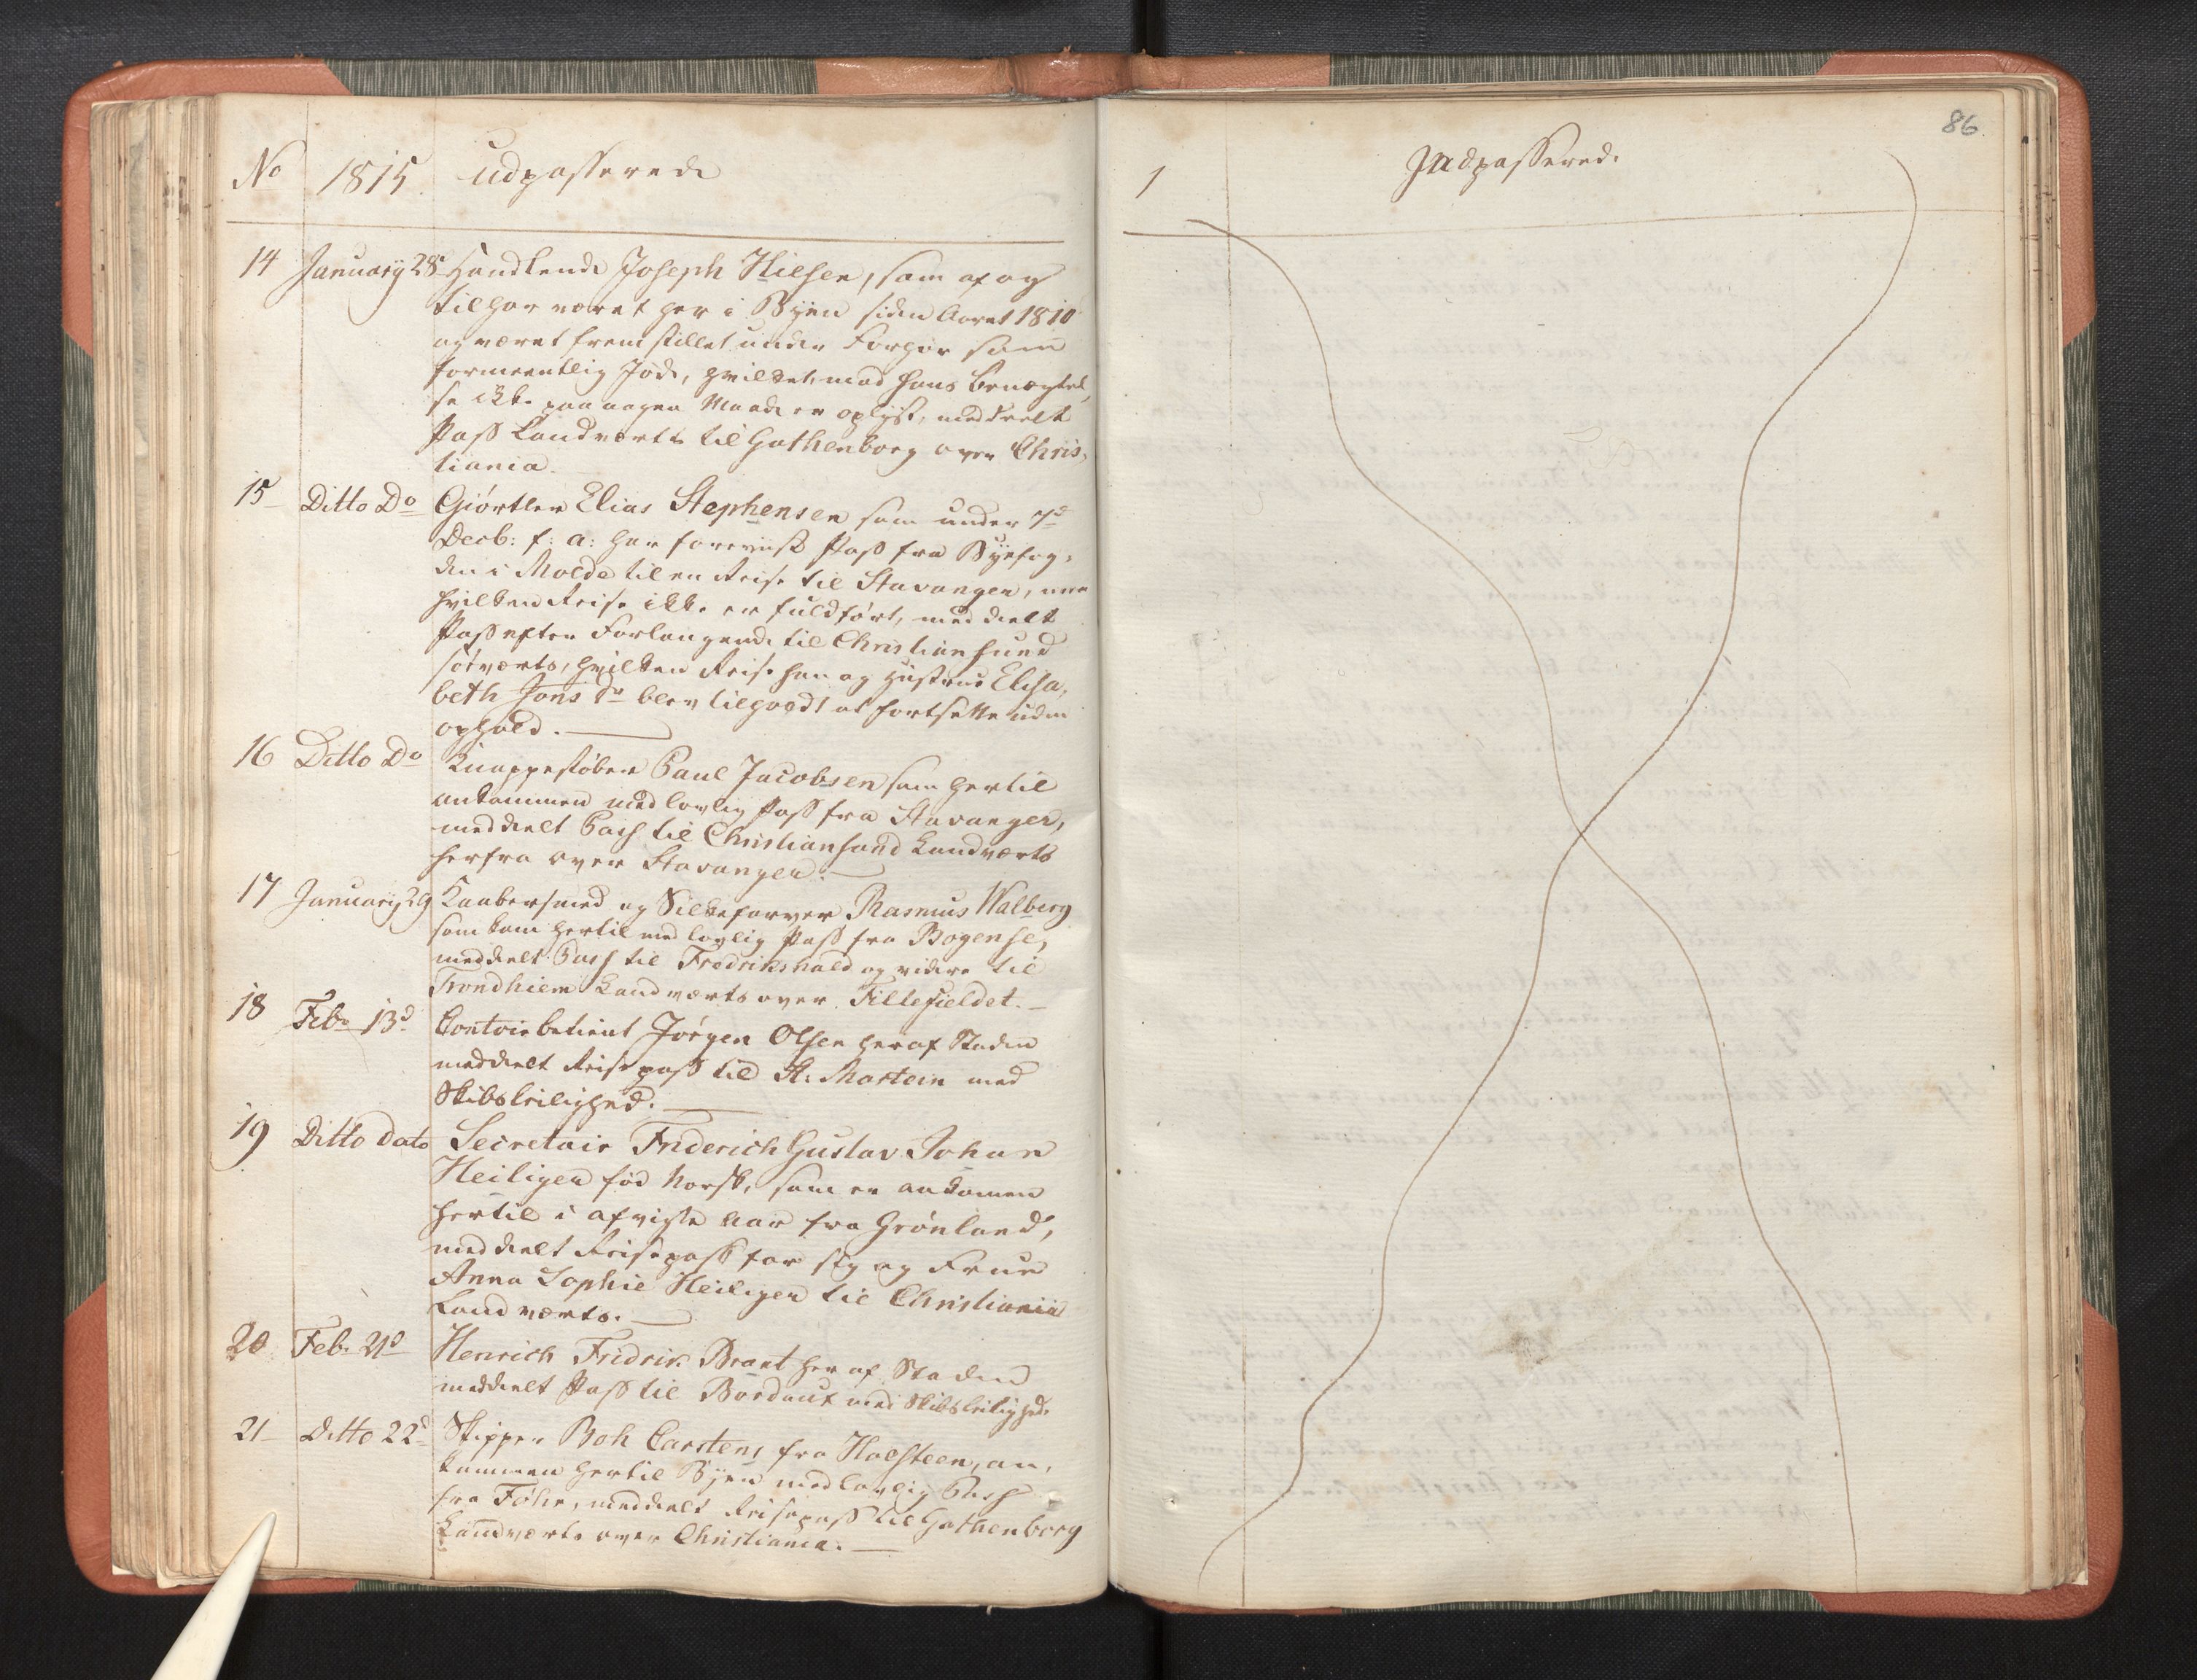 No 1815. udpasserede
14 January 28d Handlende Joseph Nielsen, som af og
til har været her i Byen siden Aaret 1810
og været fremstillet under Forhör som
formeentlig Jöde, hvilket, mod hans Benægtel,
se ikke paa nogen Maade er oplyst, meddeelt
Pass Landværts til Gothenborg over Chris,
tiania.
15 Ditto Do Giörtler Elias Stephensen som under 7d
Decb: f: a: har foreviist Pass fra Byefog,
den i Molde til en Reise til Stavanger, men
hvilken Reise ikke er fuldfört, meddeelt
Pass efter Forlangende til Christiansund
söeværts, hvilken Reise han og Hustrue Elisa,
beth Jons dr blev tilholdt at fortsette uden
ophold.
16 Ditto Do Knappestöber Paul Jacobsen som hertil
ankommen med lovlig Pass fra Stavanger,
meddeelt Pass til Christiansand Landværts
herfra over Stavanger.
17 January 29 Kaabersmed og Silkefarver Rasmus Walberg
som kom hertil med lovlig Pass fra Bogense,
meddeelt Pass til Fredrikshald og videre til
Trondhiem Landværts over Fillefieldet.
18 Feb. 13d Contoirbetient Jörgen Olsen her af Staden
meddeelt Reisepass til St. Martein med
Skibsleilighed.
19 Ditto dato Secretair Friderich Gustav Johan
Heiliger föd Norsk, som er ankommen
hertil i afvigte Aar fra Grönland,
meddeelt Reisepass for sig og Frue
Anna Sophie Heiliger til Christiania
Landværts.
20 Feb. 21d Henrich Fridrik Brant her af Staden
meddeelt Pass til Bordaux med Skibsleilighed.
21 Ditto 22d Skipper Boh Carstens fra Holsteen, an,
kommen hertil Byen med lovlig Pass
fra Föhr, meddeelt Reisepass til Gothenborg
Landværts over Christiania.
1 Indpasserede
86.